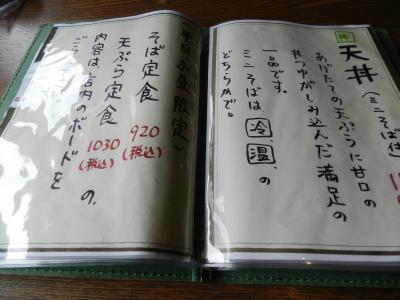 天丼(ミニそば付
あげたての天ぷらに甘口の
丼つゆがしみ込んだ満足の
一品です。
ミニそばは冷、温、の
どちらかで。
平日お昼限定〜
そば定食 920(税込)
天ぷら定食 1030(税込)
内容は店内のボードを